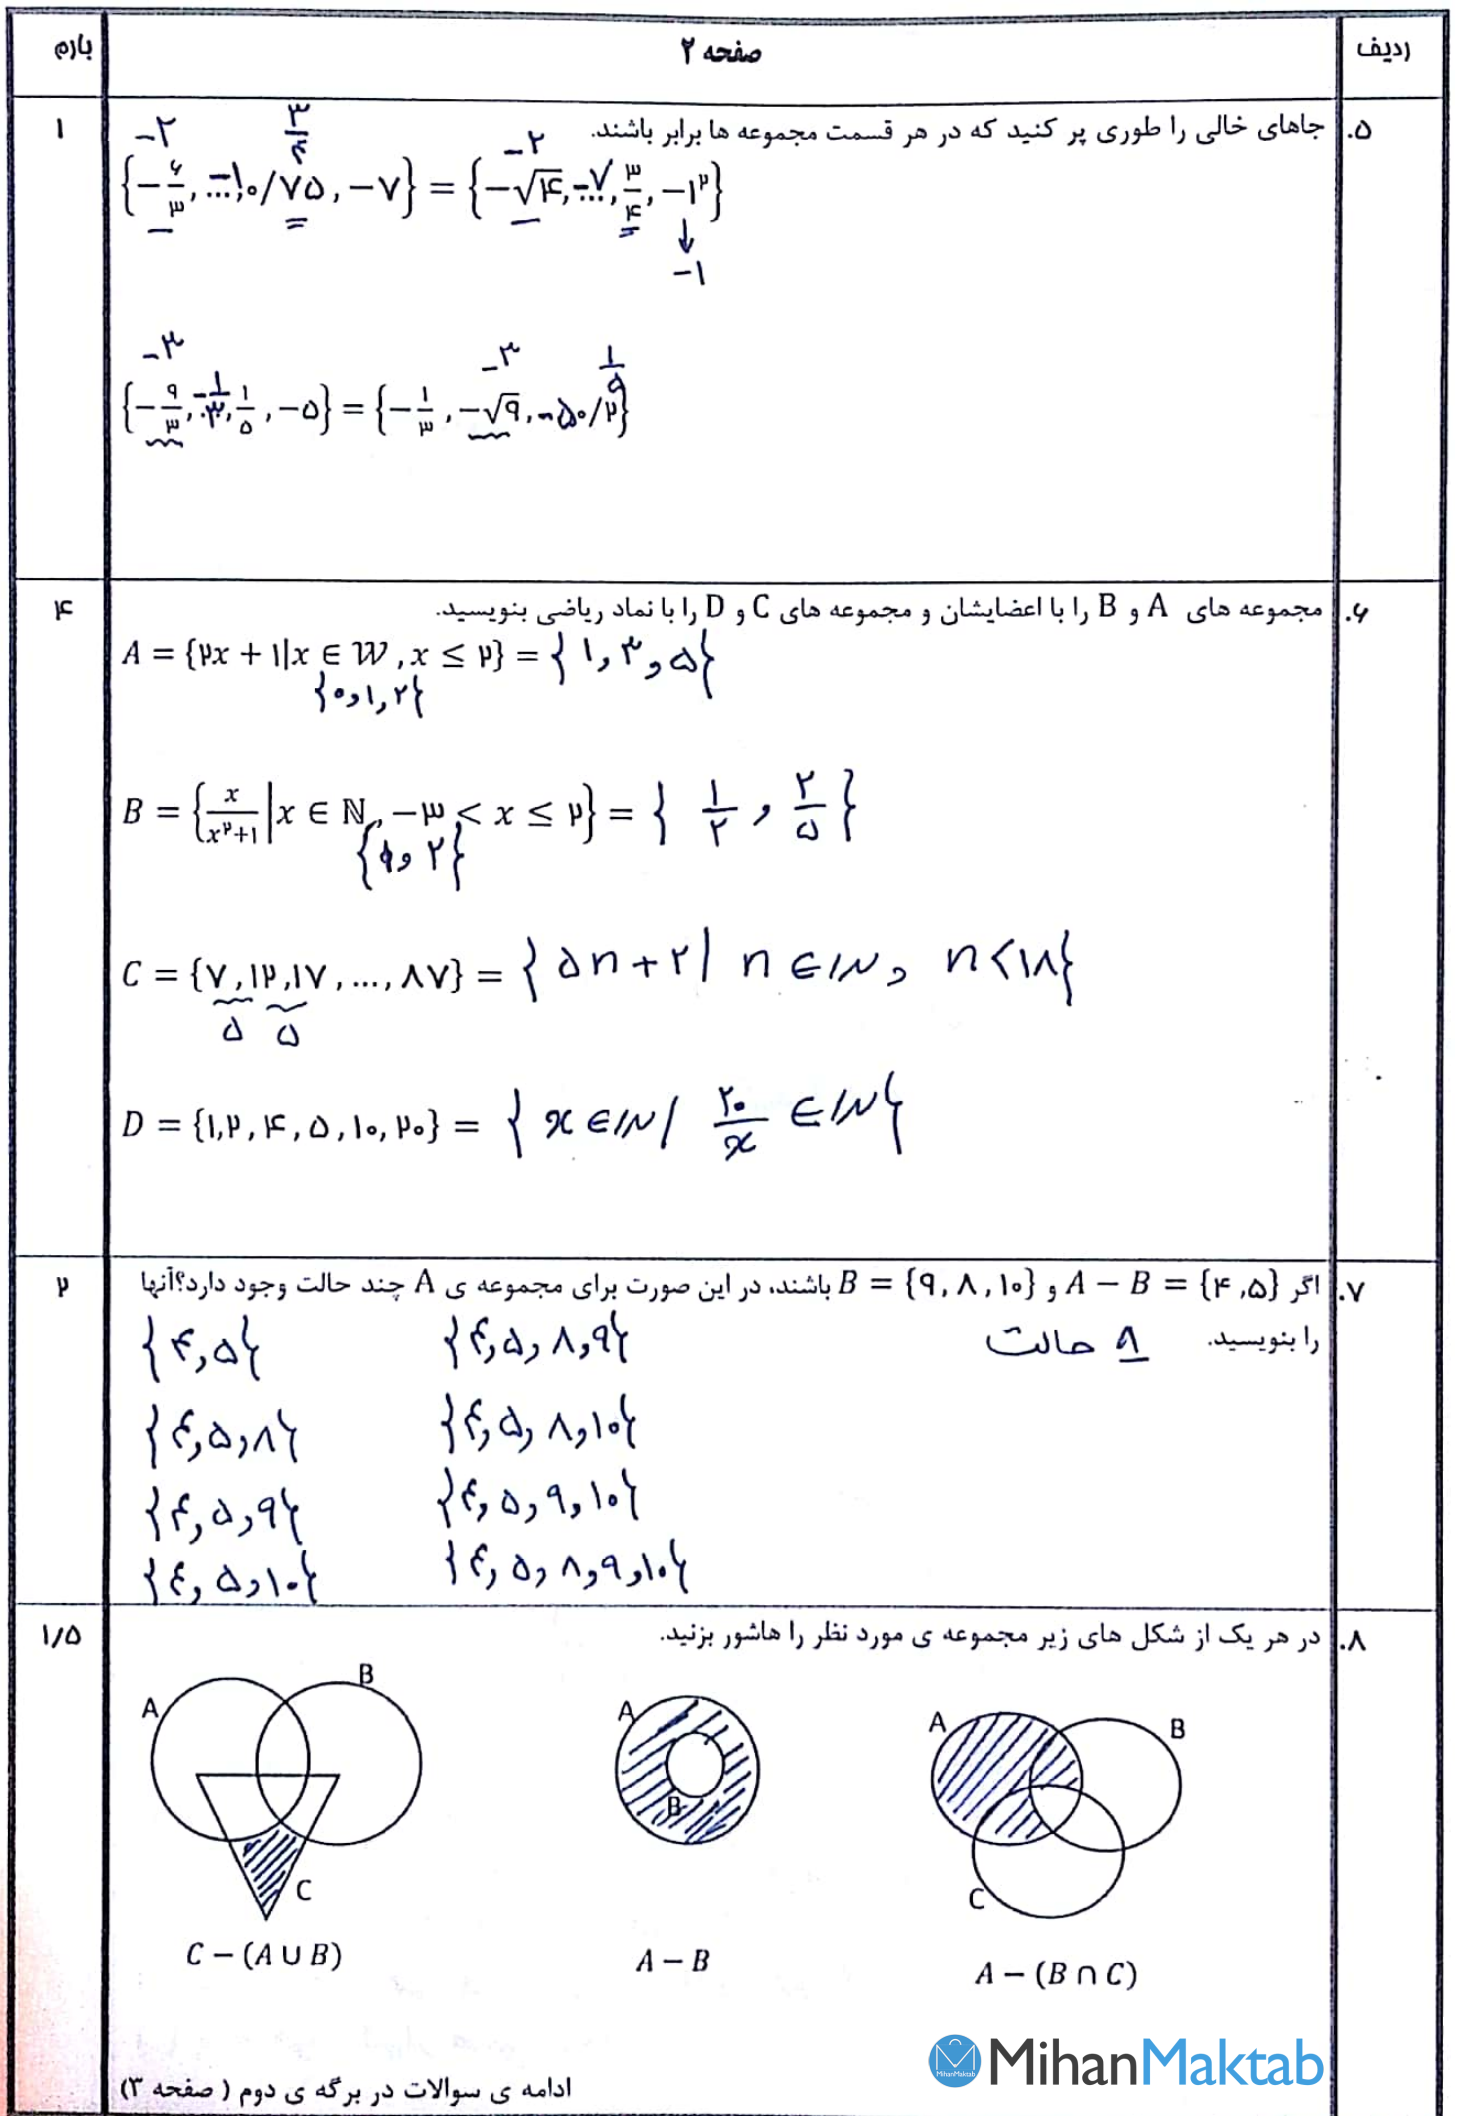 ردیف صفحه ۲ بارم
۵. جاهای خالی را طوری پر کنید که در هر قسمت مجموعه ها برابر باشند. ۱
-۲ ۳/۴ -۲
{-۶/۳, -۱, ۰/۷۵, -۷} = {-√۴, -۷, ۳/۴, -۱²}
↓
-۱
-۳ -۳ ۱/۵
{-۹/۳, -۱/۳, ۱/۵, -۵} = {-۱/۳, -√۹, -۵, ۰/۲}
۶. مجموعه های A و B را با اعضایشان و مجموعه های C و D را با نماد ریاضی بنویسید. ۴
A = {۲x + ۱|x ∈ W, x ≤ ۲} = {۱, ۳, ۵}
{۰, ۱, ۲}
B = {x/(x²+۱) | x ∈ ℕ, -۳ < x ≤ ۲} = {۱/۲, ۲/۵}
{۱, ۲}
C = {۷, ۱۲, ۱۷, ..., ۸۷} = {۵n+۲ | n ∈ ℕ, n < ۱۸}
۵ ۵
D = {۱, ۲, ۴, ۵, ۱۰, ۲۰} = {x ∈ ℕ | ۲۰/x ∈ ℕ}
۷. اگر A − B = {۴, ۵} و B = {۹, ۸, ۱۰} باشند، در این صورت برای مجموعه ی A چند حالت وجود دارد؟آنها ۲
را بنویسید. ۸ حالت
{۴, ۵} {۴, ۵, ۸, ۹}
{۴, ۵, ۸} {۴, ۵, ۸, ۱۰}
{۴, ۵, ۹} {۴, ۵, ۹, ۱۰}
{۴, ۵, ۱۰} {۴, ۵, ۸, ۹, ۱۰}
۸. در هر یک از شکل های زیر مجموعه ی مورد نظر را هاشور بزنید. ۱/۵
A B C
A B
A B C
C − (A ∪ B) A − B A − (B ∩ C)
MihanMaktab
MihanMaktab
ادامه ی سوالات در برگه ی دوم ( صفحه ۳)